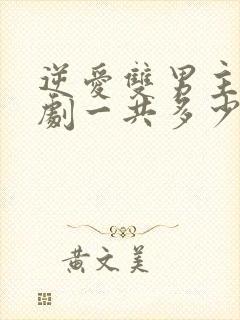 逆愛雙男主
劇一共多少
黃文美